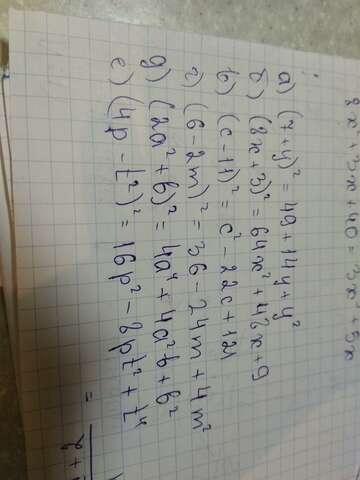 а) (7+y)² = 49 + 14y + y²
б) (8x+3)² = 64x² + 48x + 9
в) (c-11)² = c² - 22c + 121
г) (6-2m)² = 36 - 24m + 4m²
д) (2a²+b)² = 4a⁴ + 4a²b + b²
е) (4p - t²)² = 16p² - 8pt² + t⁴